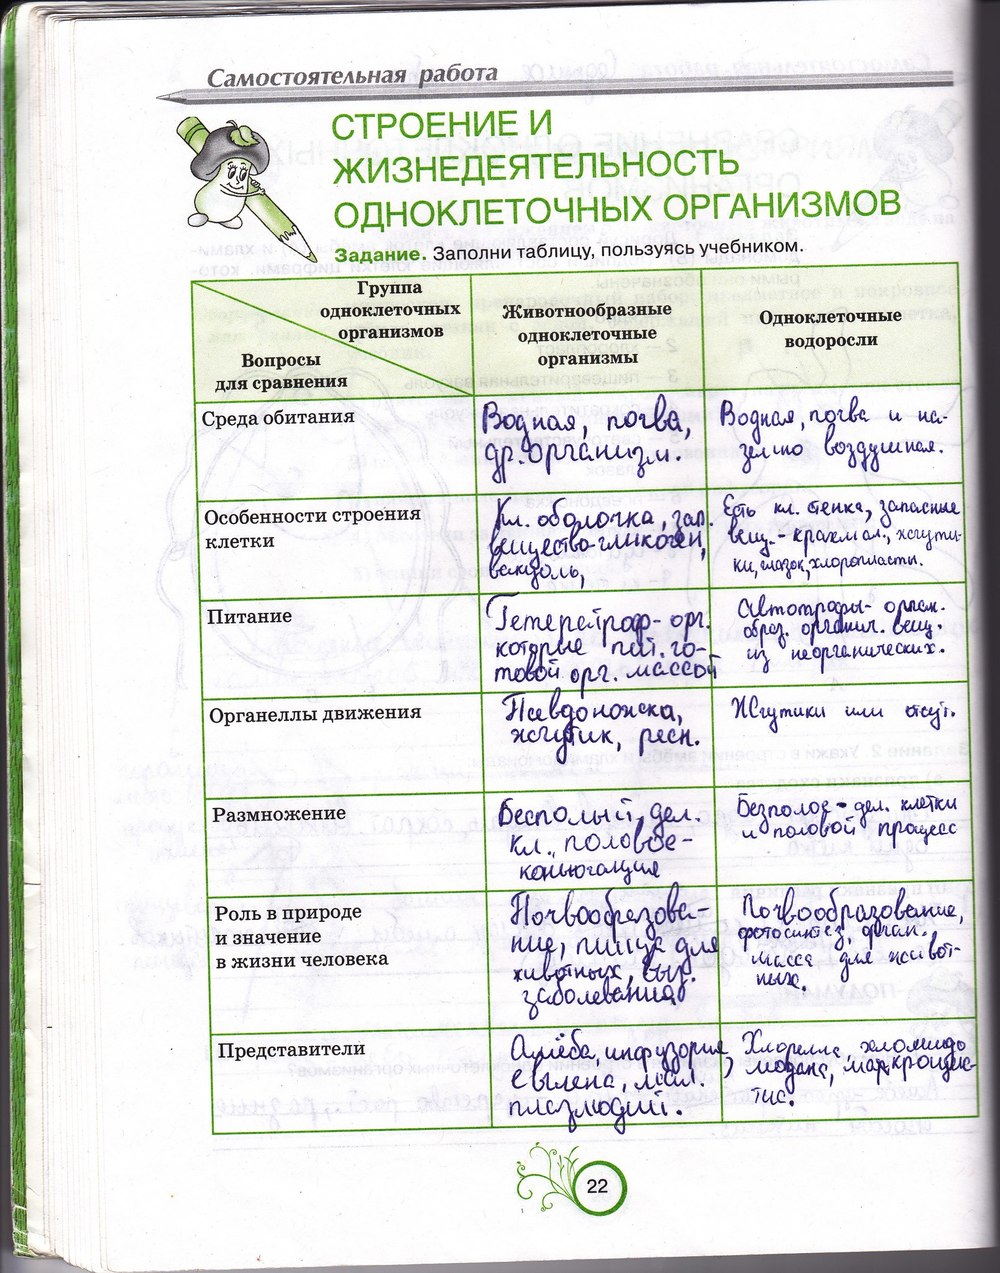 Самостоятельная работа
СТРОЕНИЕ И
ЖИЗНЕДЕЯТЕЛЬНОСТЬ
ОДНОКЛЕТОЧНЫХ ОРГАНИЗМОВ
Задание. Заполни таблицу, пользуясь учебником.
Группа
одноклеточных
организмов
Вопросы
для сравнения
Животнообразные
одноклеточные
организмы
Одноклеточные
водоросли
Среда обитания
Водная, почва,
др. организм.
Водная, почва и на-
земно воздушная.
Особенности строения
клетки
Кл. оболочка, зап.
вещество-гликоген,
вакуоль,
Есть кл. стенка, запасные
вещ. - крахмал., жгути-
ки, глазок, хлоропласты.
Питание
Гетеротроф- орг.
которые пит. го-
товой орг. массой
Автотрофы- орган.
образ. органич. вещ.
из неорганических.
Органеллы движения
Псевдоножка,
жгутик, ресн.
Жгутики или отсут.
Размножение
Бесполый, дел.
кл., половое-
коньюгация
Безполое - дел. клетки
и половой процесс
Роль в природе
и значение
в жизни человека
Почвообразова-
ние, пища для
животных, выз.
заболевания
Почвообразование,
фотосинтез, орган.
масса для живот-
ных.
Представители
Амёба, инфузория,
евглена, мал.
плазмодий.
Хлорелла, хломидо
модана,
тис.
22